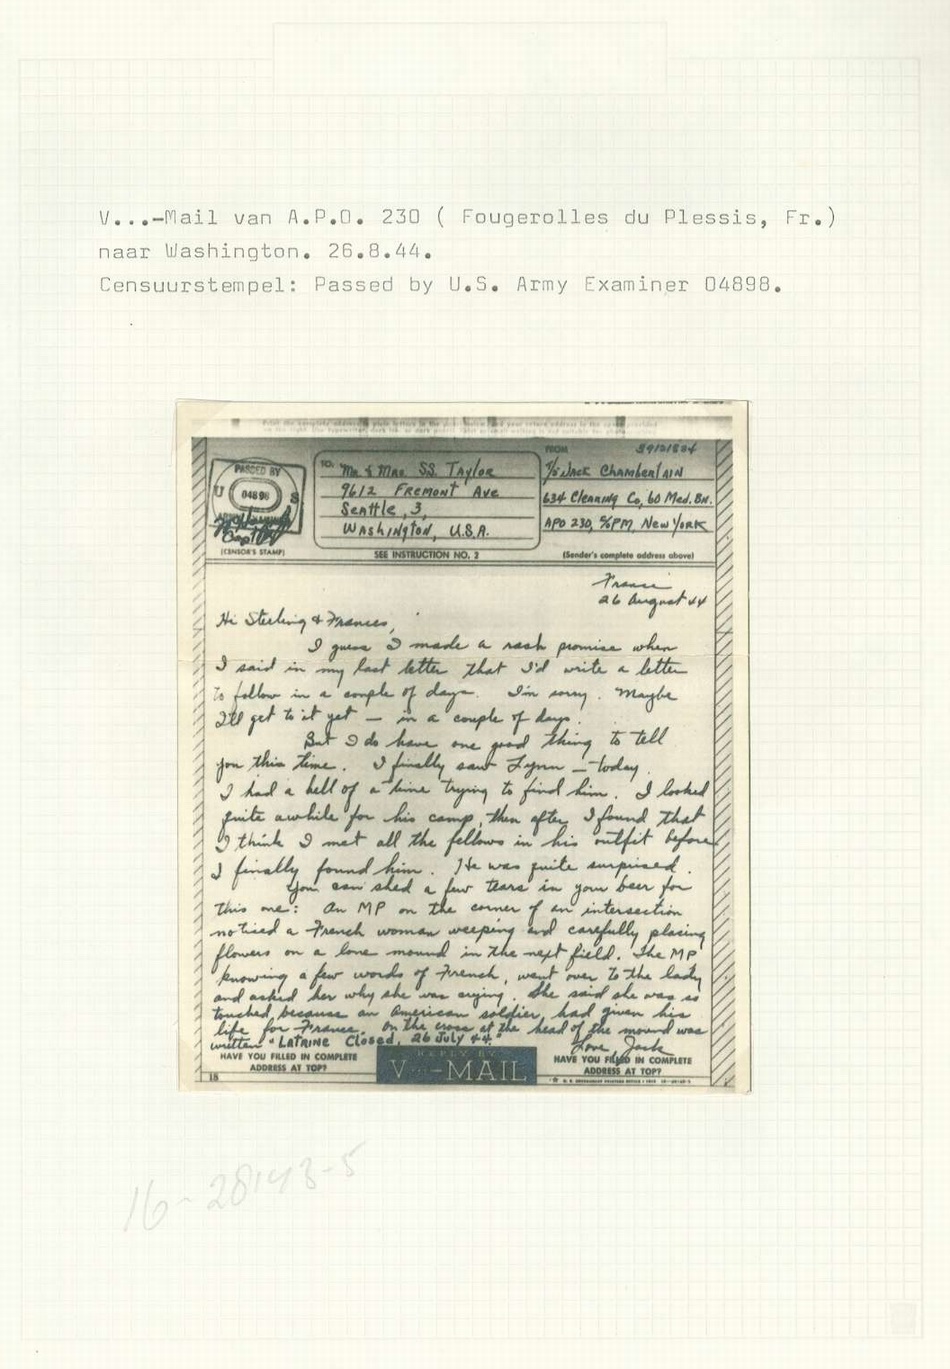 V...-Mail van A.P.O. 230 ( Fougerolles du Plessis, Fr.)
naar Washington. 26.8.44.
Censuurstempel: Passed by U.S. Army Examiner 04898.
PASSED BY
U 04898 S
(CENSOR'S STAMP)
TO:
Mr. & Mrs. SS. Taylor
9612 Fremont Ave
Seattle, 3,
Washington, U.S.A.
SEE INSTRUCTION NO. 2
FROM
T/5 Jack Chamberlain
634 Clearing Co, 60 Med. Bn.
APO 230, %PM, New York
(Sender's complete address above)
France
26 August 44
Hi Sterling & Frances,
I guess I made a rash promise when
I said in my last letter that I'd write a letter
to follow in a couple of days. I'm sorry. Maybe
I'll get to it yet — in a couple of days.
But I do have one good thing to tell
you this time. I finally saw Lynn — today.
I had a hell of a time trying to find him. I looked
quite awhile for his camp, then after I found that
I think I met all the fellows in his outfit before
I finally found him. He was quite surprised.
You can shed a few tears in your beer for
this one: An MP on the corner of an intersection
noticed a French woman weeping and carefully placing
flowers on a lone mound in the next field. The MP
knowing a few words of French, went over to the lady
and asked her why she was crying. She said she was so
touched, because an American soldier, had given his
life for France. On the cross at the head of the mound was
written "Latrine Closed, 26 July 44."
Love, Jack
HAVE YOU FILLED IN COMPLETE
ADDRESS AT TOP?
REPLY BY
V...-MAIL
HAVE YOU FILLED IN COMPLETE
ADDRESS AT TOP?
16-28143-5